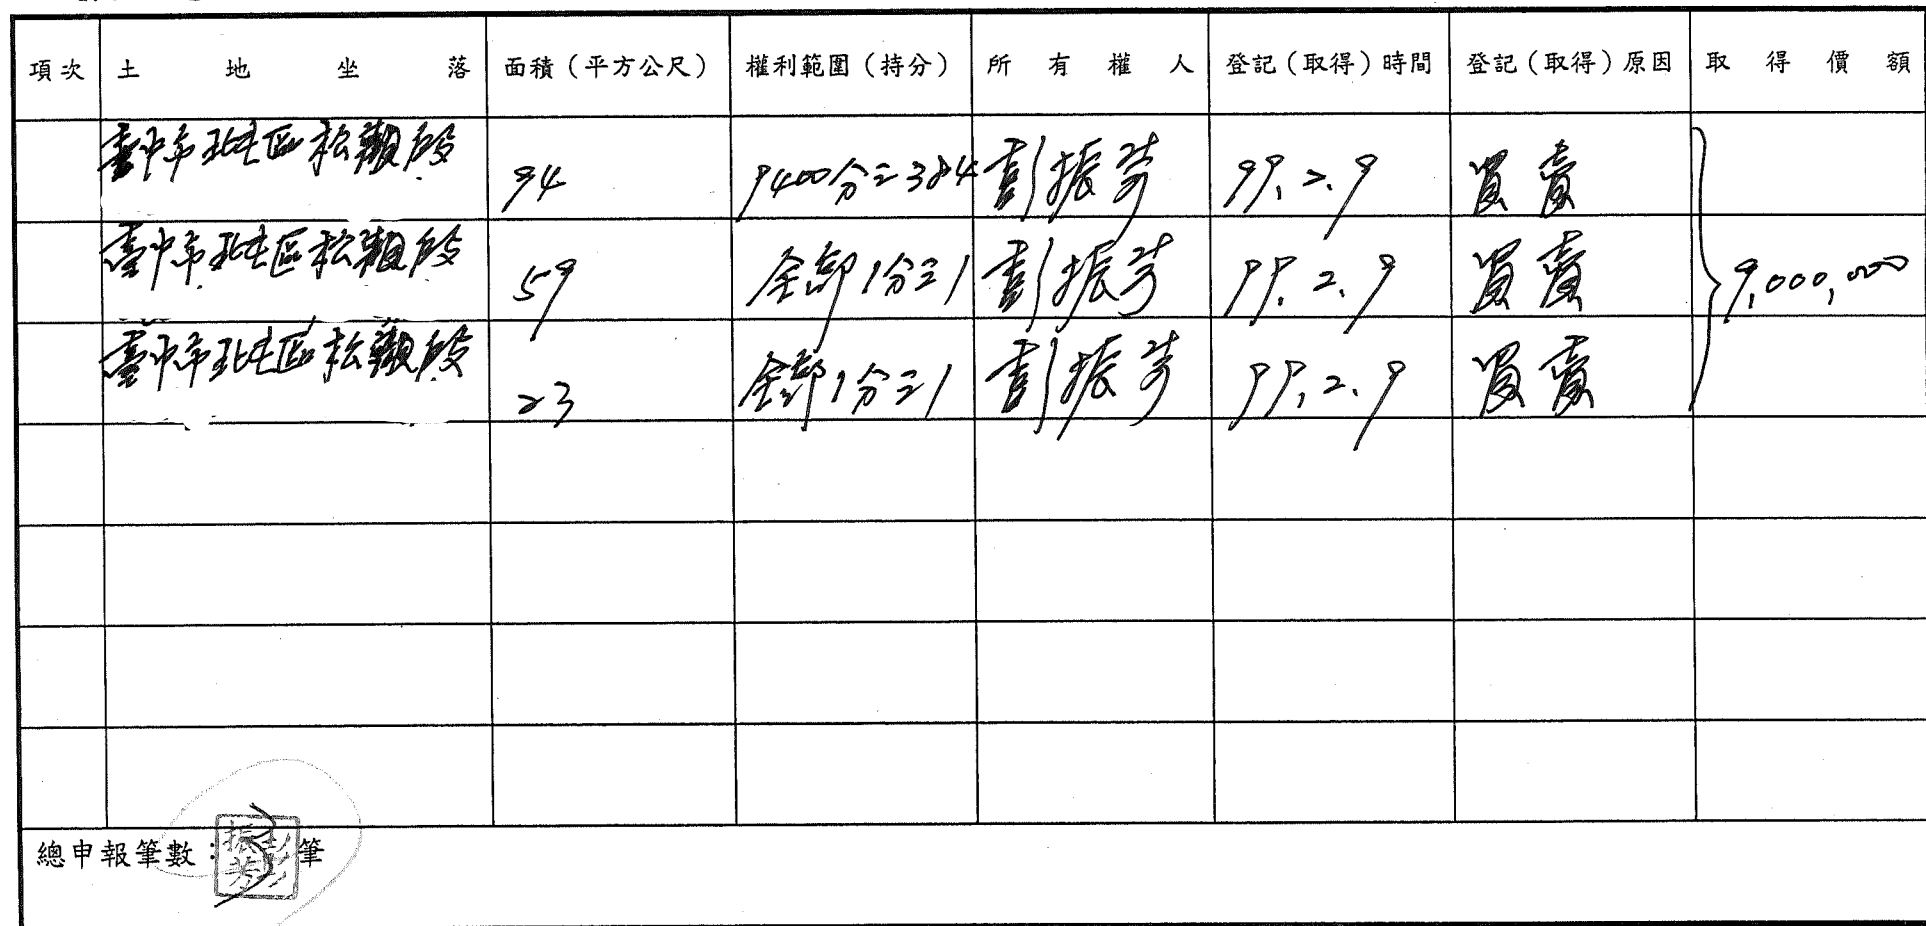 項次 土地坐落 面積（平方公尺） 權利範圍（持分） 所有權人 登記（取得）時間 登記（取得）原因 取得價額
臺中市北屯區松觀段 94 9400分之384 彭振芳 99.2.9 買賣
臺中市北屯區松觀段 59 全部1分之1 彭振芳 99.2.9 買賣 9,000,000
臺中市北屯區松觀段 23 全部1分之1 彭振芳 99.2.9 買賣
總申報筆數：3筆
彭振芳